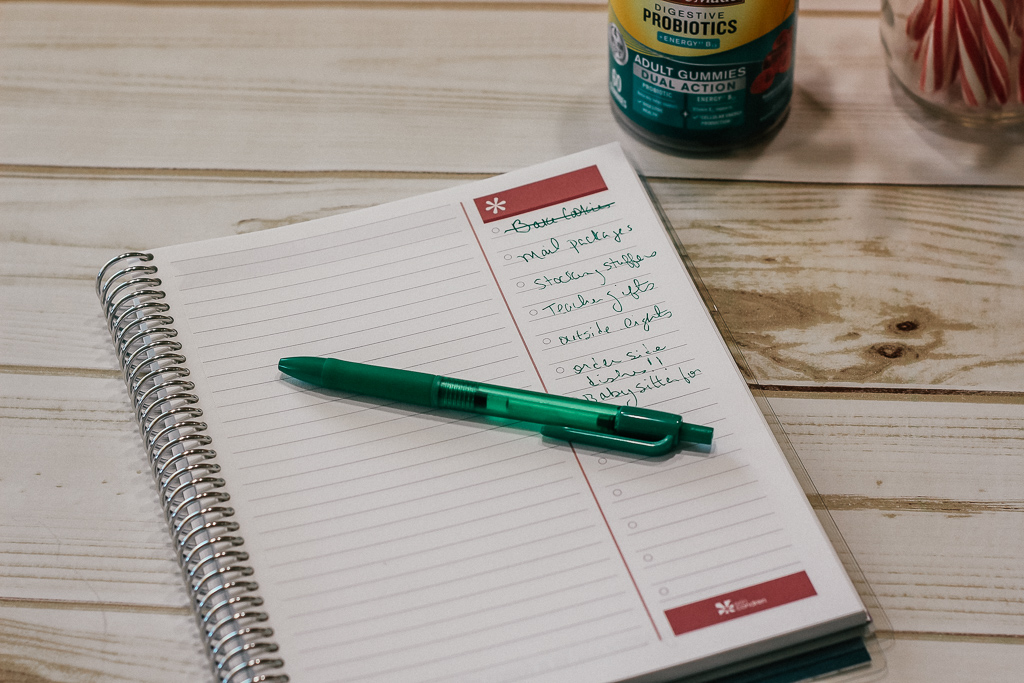 DIGESTIVE
PROBIOTICS
+ENERGY* B12
ADULT GUMMIES
DUAL ACTION
PROBIOTIC
ENERGY* B12
*
Bake Cookies
mail packages
stocking stuffers
Teacher gifts
outside lights
order side
dishes!!
Babysitter for
condren